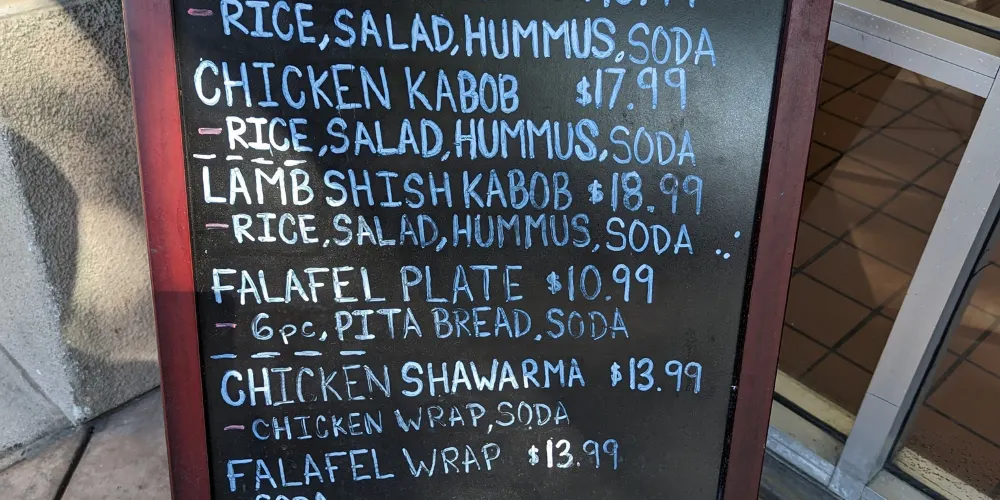 - RICE, SALAD, HUMMUS, SODA
CHICKEN KABOB $17.99
- RICE, SALAD, HUMMUS, SODA
LAMB SHISH KABOB $18.99
- RICE, SALAD, HUMMUS, SODA
FALAFEL PLATE $10.99
- 6pc, PITA BREAD, SODA
CHICKEN SHAWARMA $13.99
- CHICKEN WRAP, SODA
FALAFEL WRAP $13.99
SODA